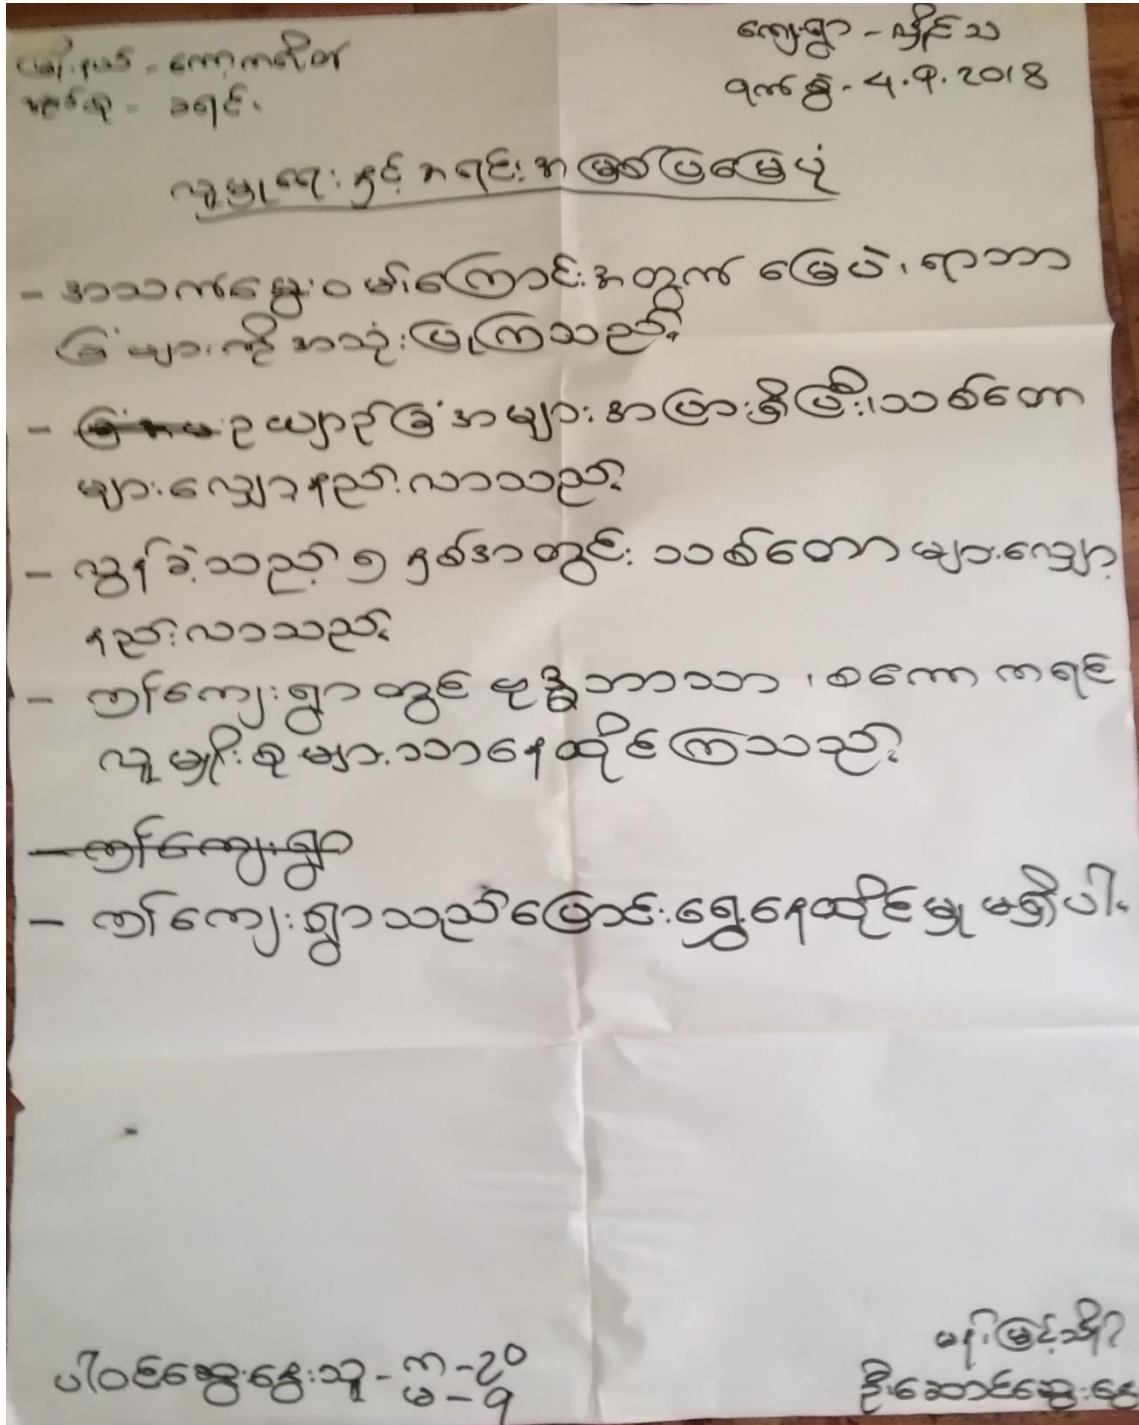 မြို့နယ် - ကော့ကရိတ်
ကျေးရွာ - လှိုင်သ
ရက်စွဲ - 4.9.2018
လူမှုရေးနှင့်အရင်းအမြစ်ပြမြေပုံ
- အသက်မွေးဝမ်းကြောင်းအတွက် မြေပဲ၊ ရာဘာ
ခြံများကိုအသုံးပြုကြသည်။
- ဥယျာဉ်ခြံအများအပြားရှိပြီး၊သစ်တော
များလျော့နည်းလာသည်။
- လွန်ခဲ့သည့် ၅ နှစ်အတွင်း သစ်တောများလျော့
နည်းလာသည်။
- ဤကျေးရွာတွင် ဗုဒ္ဓဘာသာ ၊ စကောကရင်
လူမျိုးစုများသာနေထိုင်ကြသည်။
- ဤကျေးရွာ
- ဤကျေးရွာသည်ပြောင်းရွှေ့နေထိုင်မှု မရှိပါ။
ပါဝင်ဆွေးနွေးသူ - ကျ - ၃၀
မ - ၅
မန်းမြင့်သိန်း
ဦးဆောင်ဆွေးနွေ